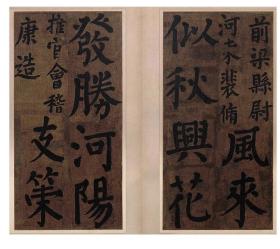 前梁縣尉
河東裴脩
風來
似秋興花
發勝河陽
推官會稽
康造
支策